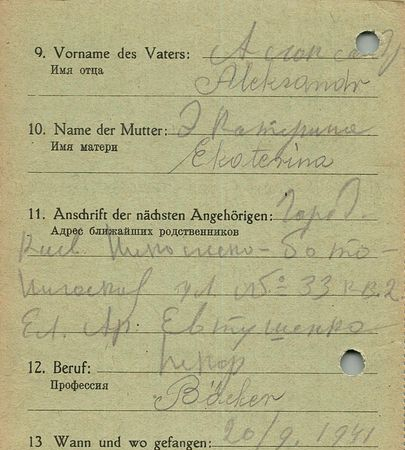 9. Vorname des Vaters: Александр
Имя отца Aleksandr
10. Name der Mutter: Экатерина
Имя матери Ekaterina
11. Anschrift der nächsten Angehörigen: Город.
Адрес ближайших родственников
Киев
ул № 33 кв. 2
Евтушенко
12. Beruf: пекар
Профессия Bäcker
13 Wann und wo gefangen: 20/9. 1941